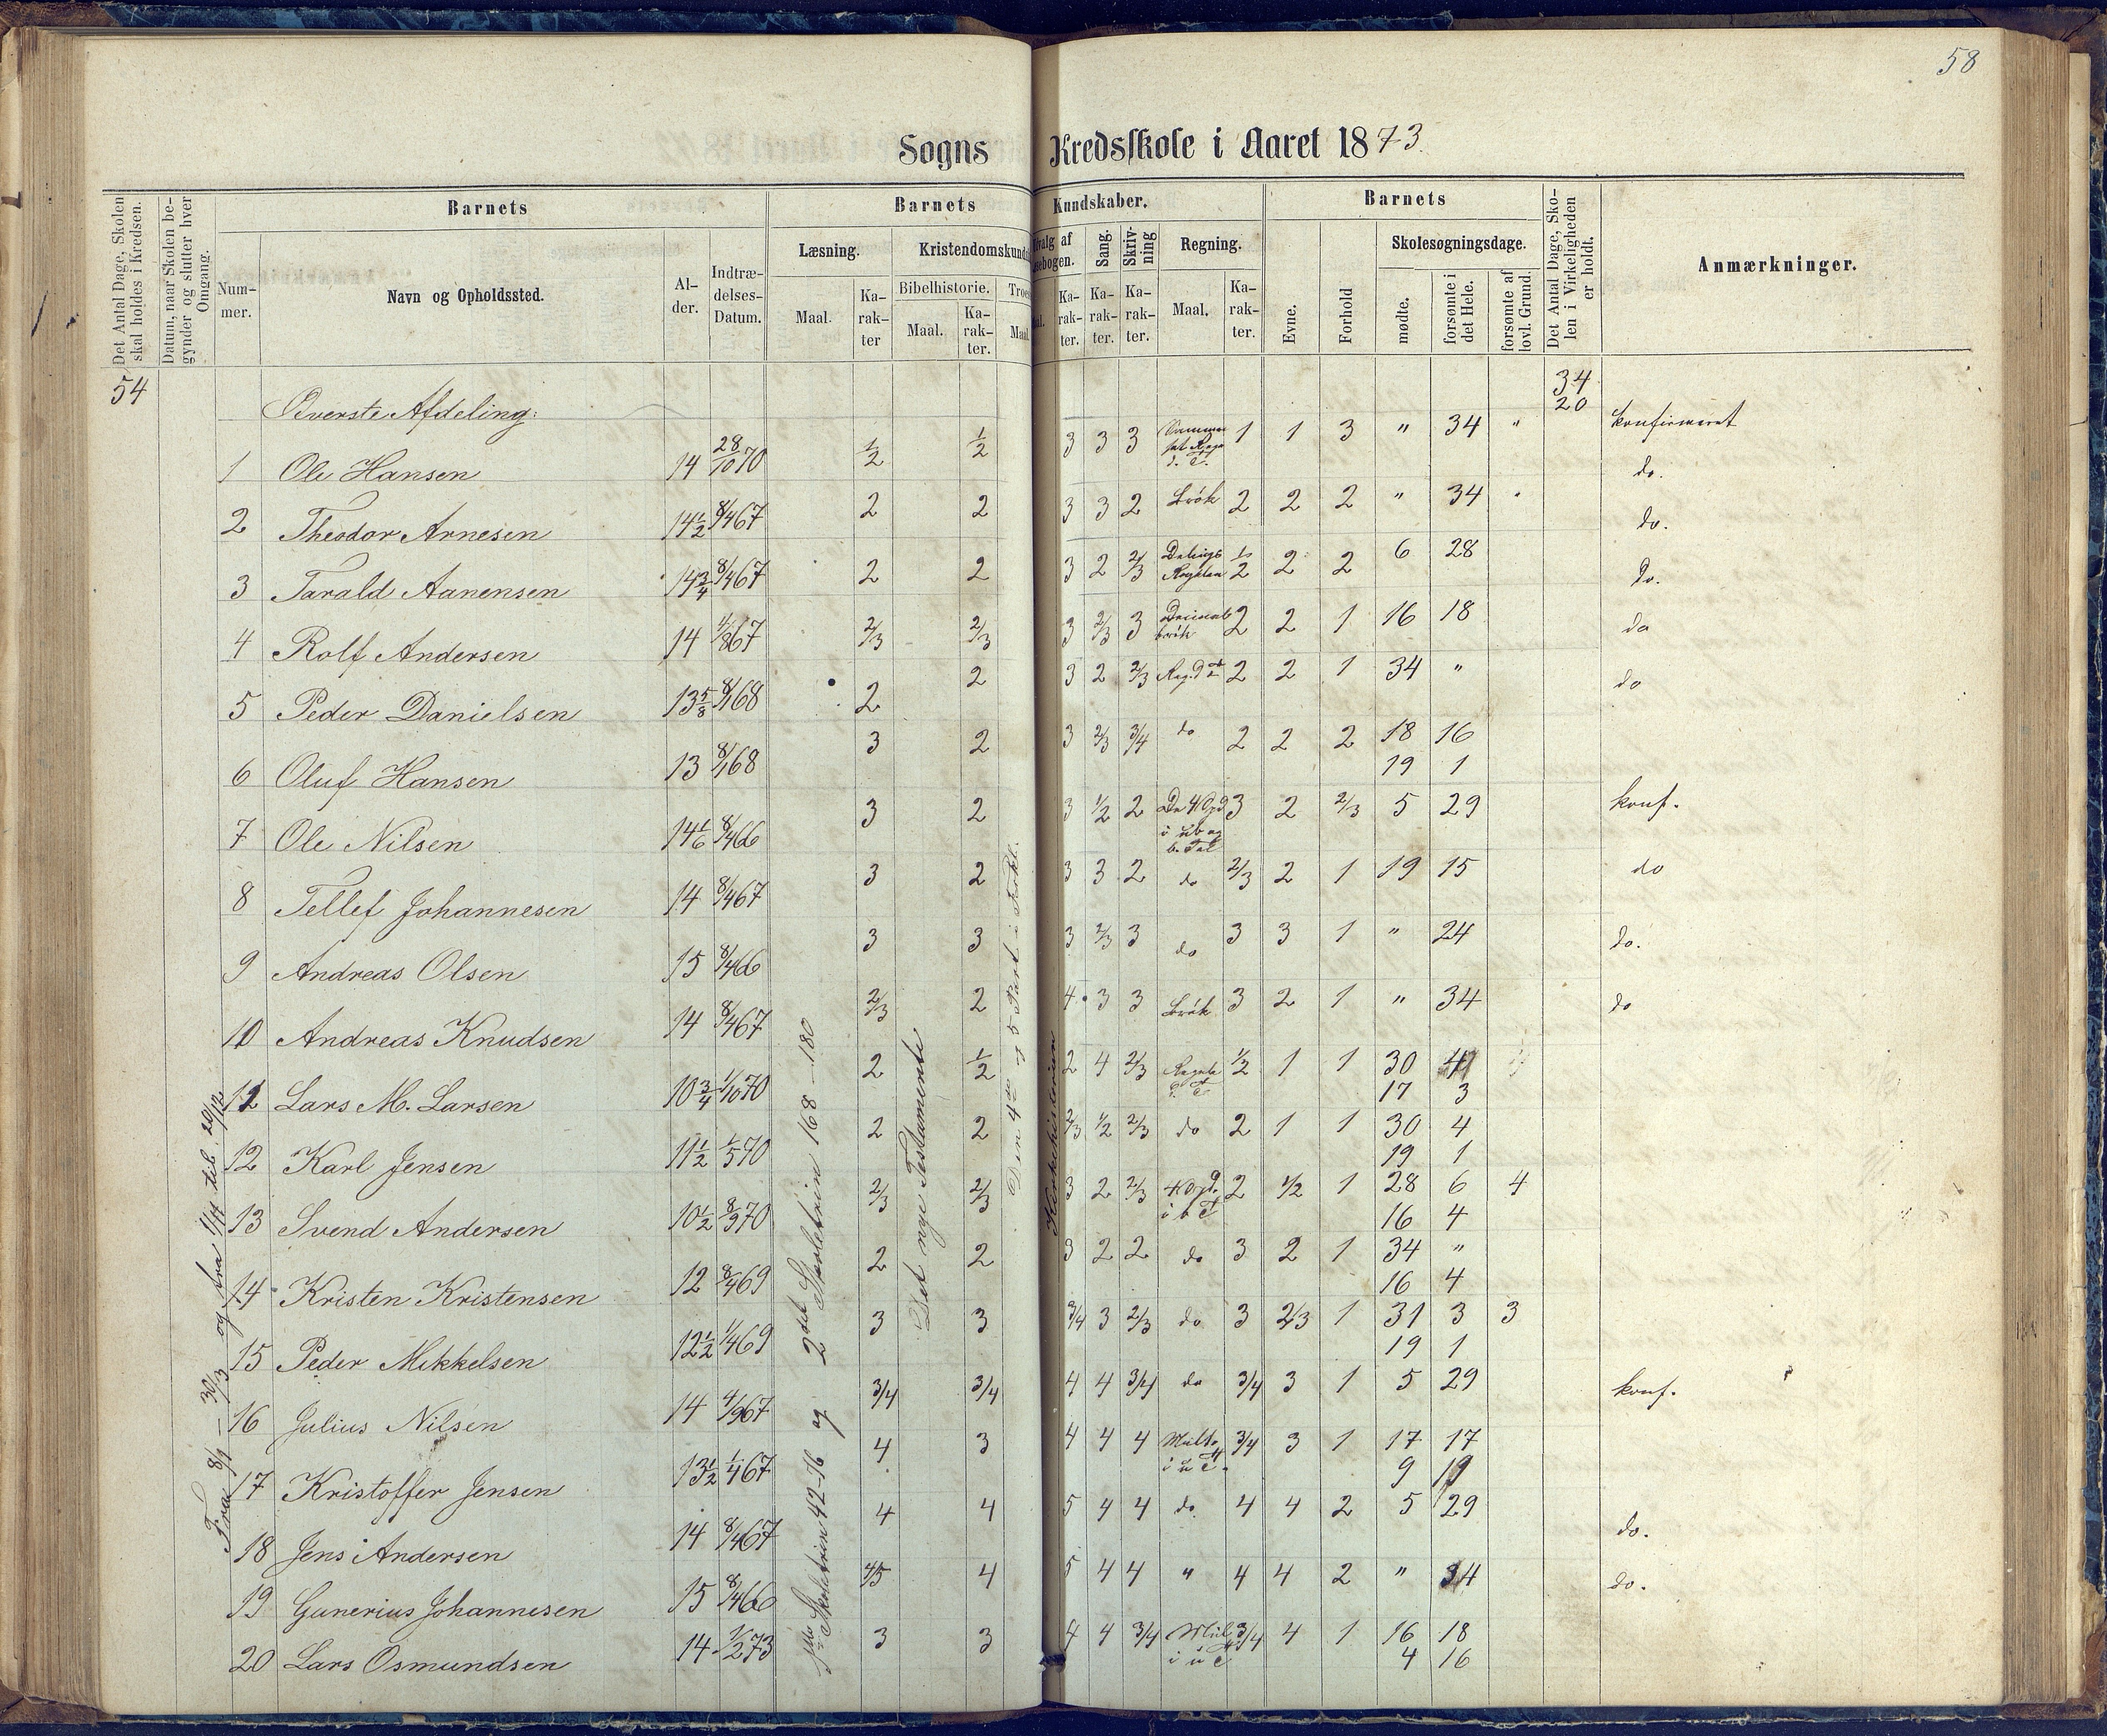 58
Sogns Kredsskole i Aaret 1873.
Det Antal Dage, Skolen skal holdes i Kredsen.
Datum, naar Skolen begynder og slutter hver Omgang.
Barnets
Barnets Kundskaber.
Barnets
Det Antal Dage, Skolen i Virkeligheden er holdt.
Anmærkninger.
Nummer.
Navn og Opholdssted.
Alder.
Indtrædelses-Datum.
Læsning.
Kristendomskunds
Sang.
Skrivning
Regning.
Evne.
Forhold
Skolesøgningsdage.
Maal.
Karakter
Bibelhistorie.
Maal.
Karakter.
Troes
Maal.
Karakter.
Karakter.
Karakter.
Maal.
Karakter.
mødte.
forsømte i det Hele.
forsømte af lovl. Grund.
54
34
20
Øverste Afdeling:
1 Ole Hansen 14 28/10 70 1/2 1/2 3 3 3 1 1 3 " 34 " konfirmeret
2 Theodor Arnesen 14 1/2 8/4 67 2 2 3 3 2 Brøk 2 2 2 " 34 do.
3 Tarald Aanensen 14 3/4 8/4 67 2 2 3 2 2/3 Delings Regelen 1/2 2 2 6 28 do.
4 Rolf Andersen 14 4/8 67 2/3 2/3 3 2/3 3 Decimalbrøk 2 2 1 16 18 do.
5 Peder Danielsen 13 5/8 8/1 68 2 2 3 2 2/3 2 2 1 34 " do
6 Oluf Hansen 13 8/1 68 3 2 3 2/3 3/4 do 2 2 2 18 16 do
19 1
7 Ole Nilsen 14 1/6 8/4 66 3 2 3 1/2 2 3 2 2/3 5 29 konf.
8 Tellef Johannesen 14 8/4 67 3 2 3 3 2 do 2/3 2 1 19 15 do
9 Andreas Olsen 15 8/4 66 3 3 3 2/3 3 do 3 3 1 " 24 do.
10 Andreas Knudsen 14 8/4 67 2/3 2 4 3 3 Brøk 3 2 1 " 34 do
11 Lars M. Larsen 10 3/4 1/10 70 2 1/2 2 4 2/3 1/2 1 1 30 4
17 3
12 Karl Jensen 11 1/2 1/5 70 2 2 2/3 1/2 2/3 do 2 1 1 30 4
19 1
13 Svend Andersen 10 1/2 8/9 70 2/3 2/3 3 2 2/3 2 1/2 1 28 6 4
16 4
14 Kristen Kristensen 12 8/4 69 2 2 3 2 2 do 3 2 1 34 "
16 4
15 Peder Mikkelsen 12 1/2 1/4 69 3 3 3/4 3 2/3 do 3 2/3 1 31 3 3
19 1
16 Julius Nilsen 14 4/9 67 3/4 3/4 4 4 3/4 do 3/4 3 1 5 29 konf.
17 Kristoffer Jensen 13 1/2 1/4 67 4 3 4 4 4 Mult. i u T. 3/4 3 1 17 17
9
18 Jens Andersen 14 8/4 67 4 4 5 4 4 do. 4 4 2 5 29 do.
19 Gunerius Johannesen 15 8/4 66 4/5 4 5 4 4 " 4 4 2 " 34 do.
20 Lars Osmundsen 14 1/2 73 3 3 4 4 3/4 Mul. i u T 3/4 4 1 16 18
4 16
Fra 8/1 – 30/3 og fra 1/11 til 20/12
1ste Skoletrin 42-76 og 2det Skoletrin 168–180
Det nye Testamente
Den 4de og 5 Part i Forkl.
Kirkehistorien